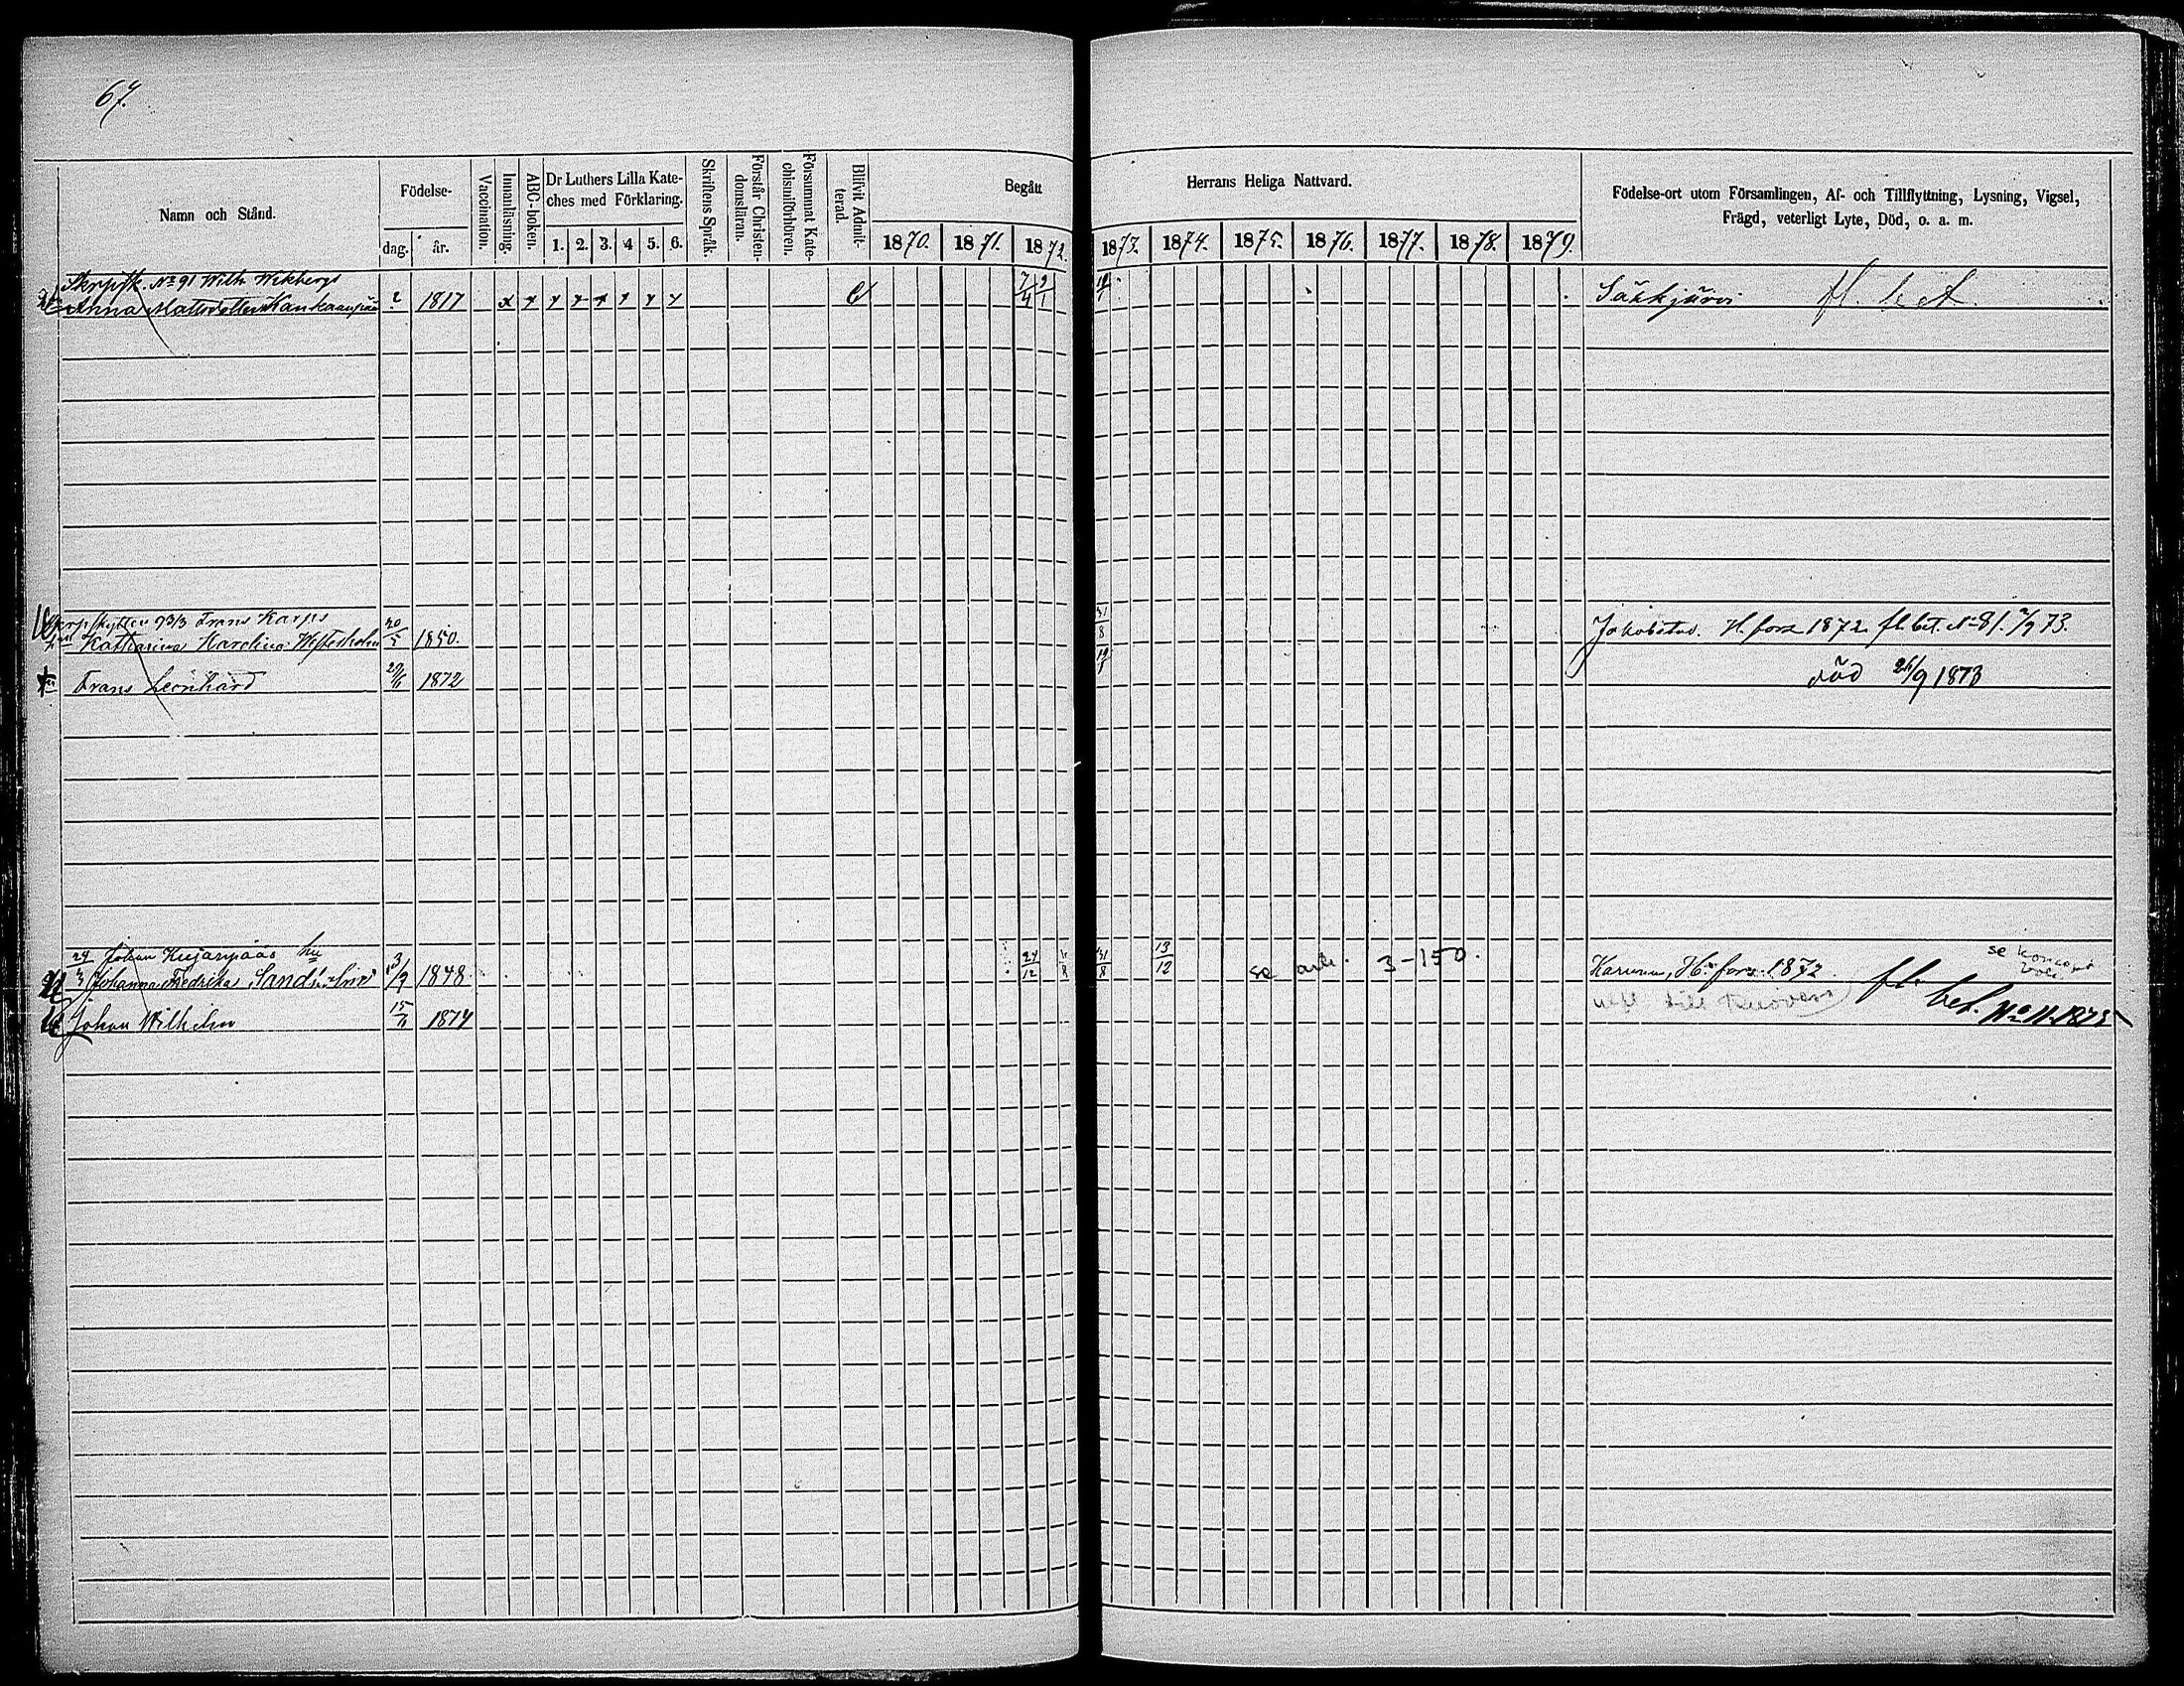 67.
Namn och Stånd.
Födelse-
dag.
år.
Vaccination.
Innanläsning.
ABC-boken.
Dr Luthers Lilla Kate-
ches med Förklaring.
1. 2. 3. 4 5. 6.
Skriftens Språk.
Förstår Christen-
domsläran.
Försummat Kate-
chismiförhören.
Blifvit Admit-
terad.
Begått
Herrans Heliga Nattvard.
1870. 1871. 1872. 1873. 1874. 1875. 1876. 1877. 1878. 1879.
Födelse-ort utom Församlingen, Af- och Tillflyttning, Lysning, Vigsel,
Frägd, veterligt Lyte, Död, o. a. m.
Skrpsk. No 91 Wilh. Wikbergs
Anna Mattsdotter Kankaanpää 2 1817 x x x x x x x x 7/4 Säkkjärvi
Frans Karps
Katharina Karolina Westerholm 20/5 1850. 31/8 Jakobstad. H.fors 1872 fl. bet. No 81. 73.
Frans Leonhard 29/6 1872 död 26/9 1873
Johan Kujanpääs hu
Johanna Fredrika 3/9 1848 27/12 31/8 13/12 se arb. 3-150. Karuna, H:fors 1872 fl. se koncept
till
Johan Wilhelm 15/11 1874 bet. No 11. 1875